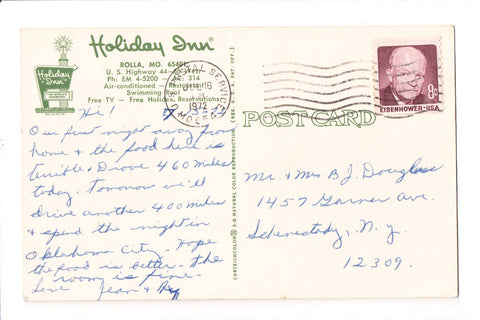 Holiday Inn
ROLLA, MO. 65401
U. S. Highway 44
Ph: EM 4-5200 314
Air-conditioned - Restaurant
Swimming Pool
Free TV - Free Holidex Reservations
Holiday Inn
POSTAL SERVICE
1972
MO
8¢
EISENHOWER·USA
POST CARD
CURTEICHCOLOR® 3-D NATURAL COLOR REPRODUCTION (REG. U.S. PAT. OFF.)
Hi!
Our first night away from
home & the food here is
terrible. Drove 460 miles
today. Tomorrow we'll
drive another 400 miles
& spend the night in
Oklahoma City. Hope
the food is better - the
room is fine -
Love Jean &
Mr. & Mrs B J. Douglass
1457 Garner Ave.
Schenectady, N.y.
12309.